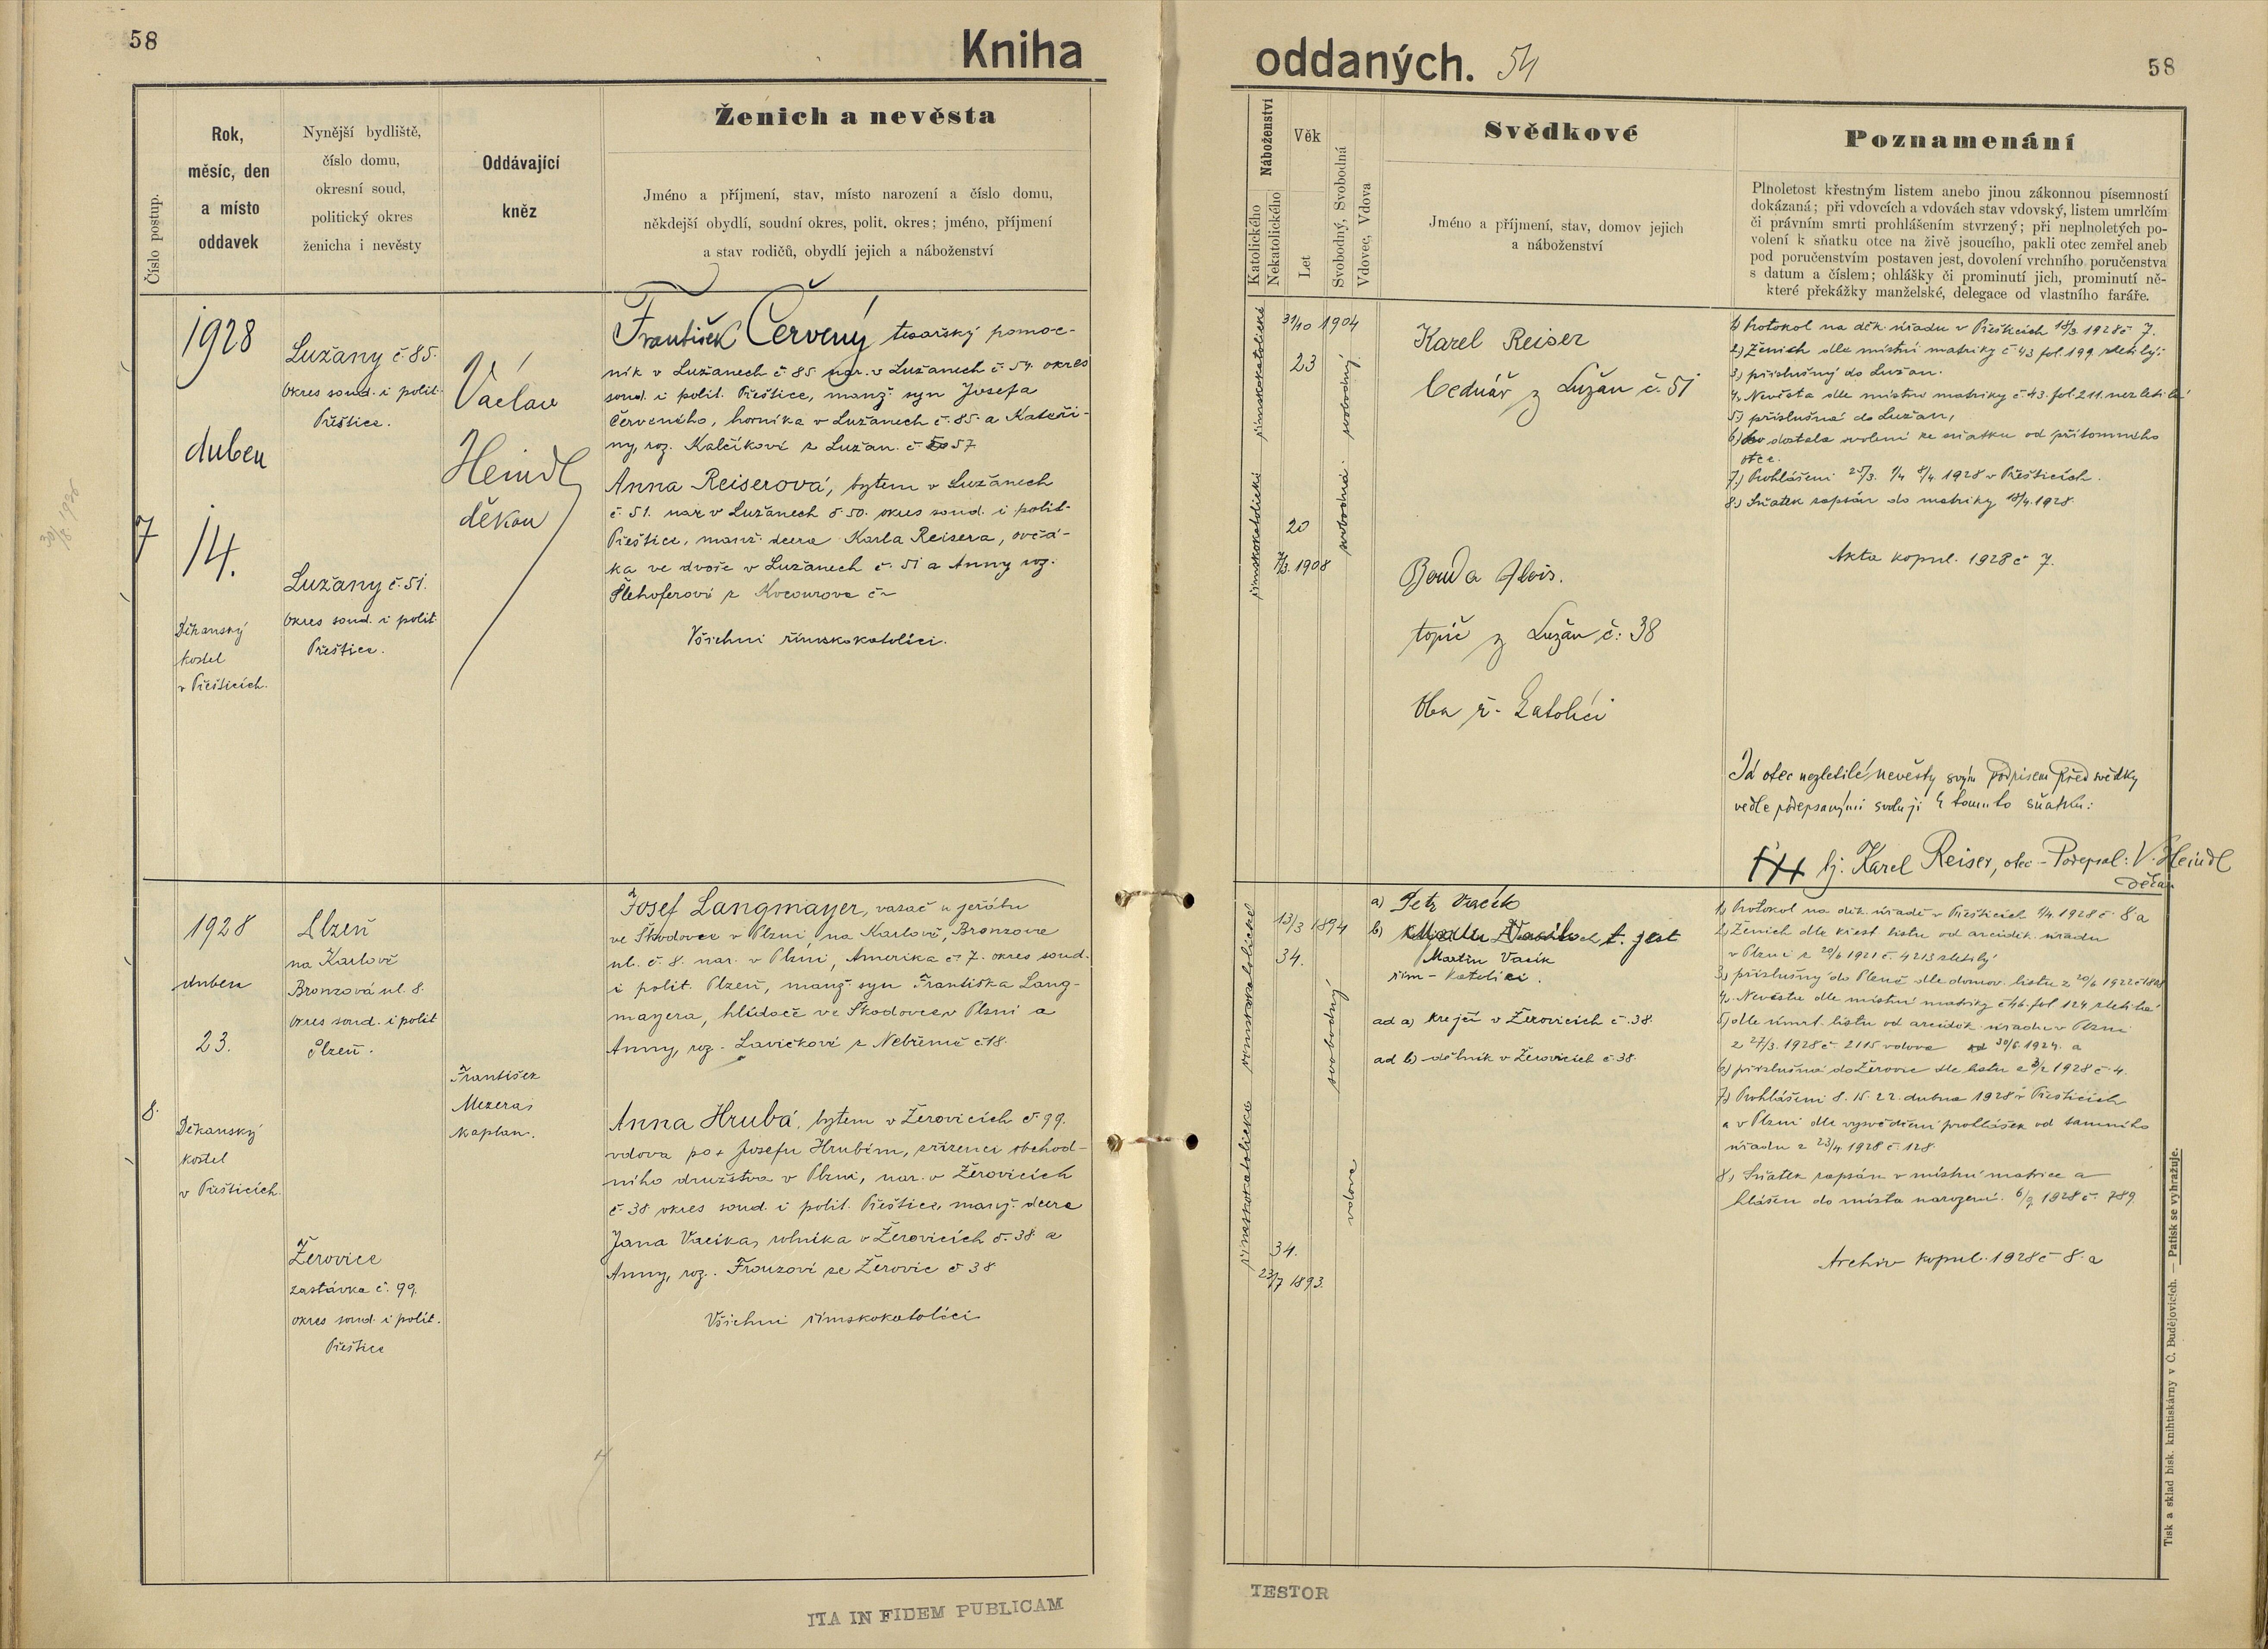 58
Kniha
Číslo postup.
Rok,
měsíc, den
a místo
oddavek
Nynější bydliště,
číslo domu,
okresní soud,
politický okres
ženicha i nevěsty
Oddávající
kněz
Ženich a nevěsta
Jméno a příjmení, stav, místo narození a číslo domu,
někdejší obydlí, soudní okres, polit. okres; jméno, příjmení
a stav rodičů, obydlí jejich a náboženství
7
1928
duben
14.
Děkanský
kostel
v Přešticích.
Lužany č. 85.
Okres soud. i polit.
Přeštice.
Lužany č. 51.
Okres soud. i polit.
Přeštice.
Václav
Heindl
děkan
František Červený tesařský pomoc-
ník v Lužanech č. 85 nar. v Lužanech č. 54. okres
soud. i polit. Přeštice, manž. syn Josefa
Červeného, horníka v Lužanech č. 85. a Kateři-
ny, roz. Kalčíkové z Lužan. č. 57
Anna Reiserová, bytem v Lužanech
č. 51. nar. v Lužanech č. 50. okres soud. i polit.
Přeštice, manž. dcera Karla Reisera, ovčá-
ka ve dvoře v Lužanech č. 51 a Anny roz.
Šlehoferové z Kocourova č –
Všichni římskokatolíci.
8.
1928
duben
23.
Děkanský
kostel
v Přešticích.
Plzeň
na Karlově
Bronzová ul. 8.
Okres soud. i polit
Plzeň.
Žerovice
zastávka č. 99.
okres soud. i polit.
Přeštice
František
Mezera,
kaplan.
Josef Langmayer, vazač u jeřábu
ve Škodovce v Plzni, na Karlově, Bronzova
ul. č. 8. nar. v Plzni, Amerika č. 7. okres soud.
i polit. Plzeň, manž. syn Františka Lang-
mayera, hlídače ve Škodovce v Plzni a
Anny, roz. Lavičkové z Nebřemě č. 18.
Anna Hrubá, bytem v Žerovicích č. 99.
vdova po + Josefu Hrubém, zřízenci obchod-
ního družstva v Plzni, nar. v Žerovicích
č 38 okres soud. i polit. Přeštice, manž. dcera
Jana Vacíka, rolníka v Žerovicích č. 38 a
Anny, roz. Frouzové ze Žerovic č 38
Všichni římskokatolíci
ITA IN FIDEM PUBLICAM
oddaných. 54
58
Náboženství
Katolického
Nekatolického
Věk
Let
Svobodný, Svobodná
Vdovec, Vdova
Svědkové
Jméno a příjmení, stav, domov jejich
a náboženství
Poznamenání
Plnoletost křestným listem anebo jinou zákonnou písemností
dokázaná; při vdovcích a vdovách stav vdovský, listem umrlčím
či právním smrti prohlášením stvrzený; při neplnoletých po-
volení k sňatku otce na živě jsoucího, pakli otec zemřel aneb
pod poručenstvím postaven jest, dovolení vrchního poručenstva
s datum a číslem; ohlášky či prominutí jich, prominutí ně-
které překážky manželské, delegace od vlastního faráře.
římskokatolické
31/10 1904
23
svobodný
římskokatolické
20
7/3. 1908
svobodná
Karel Reiser
bednář z Lužan č. 51
Bouda Alois.
topič z Lužan č: 38
Oba ř. katolíci
1) Protokol na děk. úřadu v Přešticích 18/3. 1928 č 7.
2) Ženich dle místní matriky č 43 fol. 199 zletilý:
3) příslušný do Lužan.
4. Nevěsta dle místní matriky č 43. fol. 211. nezletilá
5.) příslušná do Lužan,
6) dostala svolení ke sňatku od přítomného
otce.
7.) Prohlášení 25/3. 1/4 8/4. 1928 v Přešticích.
8.) Sňatek zapsán do matriky 15/4. 1928.
Akta kopul. 1928 č 7.
Já otec nezletilé nevěsty svým podpisem před svědky
vedle podepsanými svoluji k tomuto sňatku:
+++ tj. Karel Reiser, otec – Podepsal: V. Heindl
děkan
římskokatolické
13/3 1894
34.
svobodný
římskokatolické
34.
23/7 1893.
vdova
a) Petr Vacík
b) t. jest
Martin Vacík
řím – katolíci.
ad a) krejčí v Žerovicích č. 38.
ad b) dělník v Žerovicích č. 38.
1) Protokol na děk. úřadě v Přešticích 1/4. 1928 č. 8 a
2) Ženich dle křest. listu od arciděk. úřadu
v Plzni z 20/6 1921 č. 4213 zletilý
3) příslušný do Plzně dle domov. listu z 20/6 1922
4. Nevěsta dle místní matriky č 46. fol 124 zletilá
5) dle úmrt. listu od arciděk. úřadu v Plzni
z 27/3. 1928 č. 2115 vdova od 30/6. 1924. a
6) příslušná do Žerovic dle listu z 3/2 1928 č 4.
7) Prohlášení 8. 15. 22. dubna 1928 v Přešticích
a v Plzni dle vysvědčení prohlášek od tamního
úřadu z 23/4 1928 č. 128.
8) Sňatek zapsán v místní matrice a
hlášen do místa narození. 1928 č. 789.
Archiv kopul. 1928 č 8. a
Tisk a sklad bisk. knihtiskárny v Č. Budějovicích. — Patisk se vyhražuje.
TESTOR